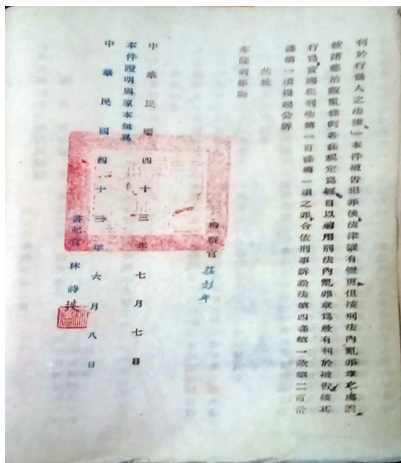 利於行為人之法律」本件被告犯罪後法律雖有變更但按刑法內亂罪章之處罰
較諸懲治叛亂條例各條規定為輕自以適用刑法內亂罪章為較有利於被告核其
行為實國犯刑法第一百條第一項之罪合依刑事訴訟法第四條第一款第二百三十
條第一項提起公訴
此致
本院刑事庭
檢察官
中華民國四十三年七月七日
本件證明與原本無異
中華民國四十三年六月八日
書記官 林詩